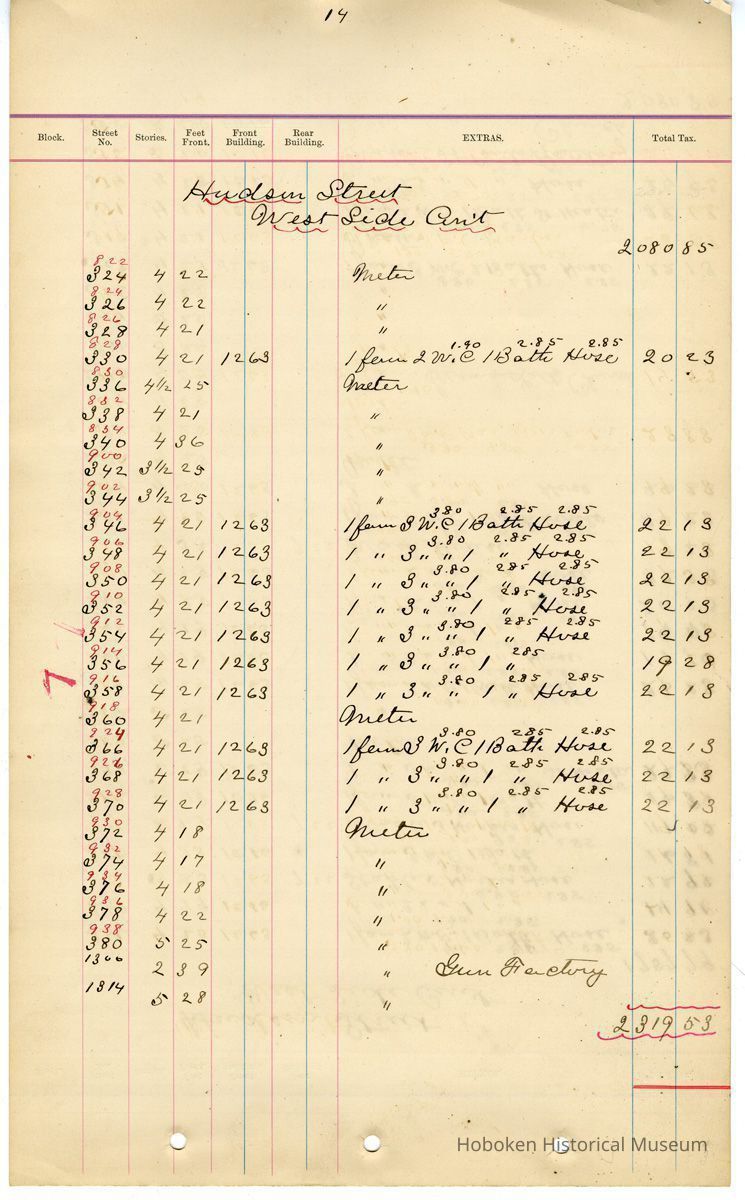 14
Block. Street No. Stories. Feet Front. Front Building. Rear Building. EXTRAS. Total Tax.
Hudson Street
West Side Con't
2080 85
822
324 4 22 Meter
824
326 4 22 "
826
328 4 21 "
828 1.90 2.85 2.85
330 4 21 12 63 1 fam 2 W.C 1 Bath Hose 20 23
830
336 4 1/2 25 Meter
832
338 4 21 "
834
340 4 36 "
900
342 3 1/2 25 "
902
344 3 1/2 25 "
904 3.80 2.85 2.85
346 4 21 12 63 1 fam 3 W.C 1 Bath Hose 22 13
906 3.80 2.85 2.85
348 4 21 12 63 1 " 3 " " 1 " Hose 22 13
908 3.80 285 2.85
350 4 21 12 63 1 " 3 " " 1 " Hose 22 13
910 3.80 285 2.85
352 4 21 12 63 1 " 3 " " 1 " Hose 22 13
912 3.80 285 2.85
354 4 21 12 63 1 " 3 " " 1 " Hose 22 13
914 3.80 285
356 4 21 12 63 1 " 3 " " 1 " 19 28
7
916 3.80 2.85 2.85
358 4 21 12 63 1 " 3 " " 1 " Hose 22 13
918
360 4 21 Meter
924 3.80 2.85 2.85
366 4 21 12 63 1 fam 3 W.C 1 Bath Hose 22 13
926 3.80 2.85 2.85
368 4 21 12 63 1 " 3 " " 1 " Hose 22 13
928 3.80 2.85 2.85
370 4 21 12 63 1 " 3 " " 1 " Hose 22 13
930
372 4 18 Meter
932
374 4 17 "
934
376 4 18 "
936
378 4 22 "
938
380 5 25 "
1300 2 39 " Gun Factory
1314 5 28 "
2319 53
Hoboken Historical Museum